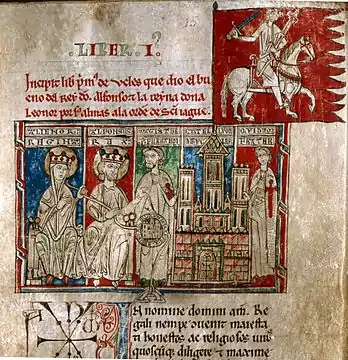 15
.LIBER.I.
Incipit lib pmᵒ de Veles que dio el bu
eno del Rey dō Alfonso z la reyna dona
Leonor por almas ala ordē de
ALIENOR REGINA
ALFONSUS REX
MAGISTER
nomine domini am̄. Re
gali nempe ouenit maiesta
ti honestos ac religiosos
quoscunq; diligere et maxime